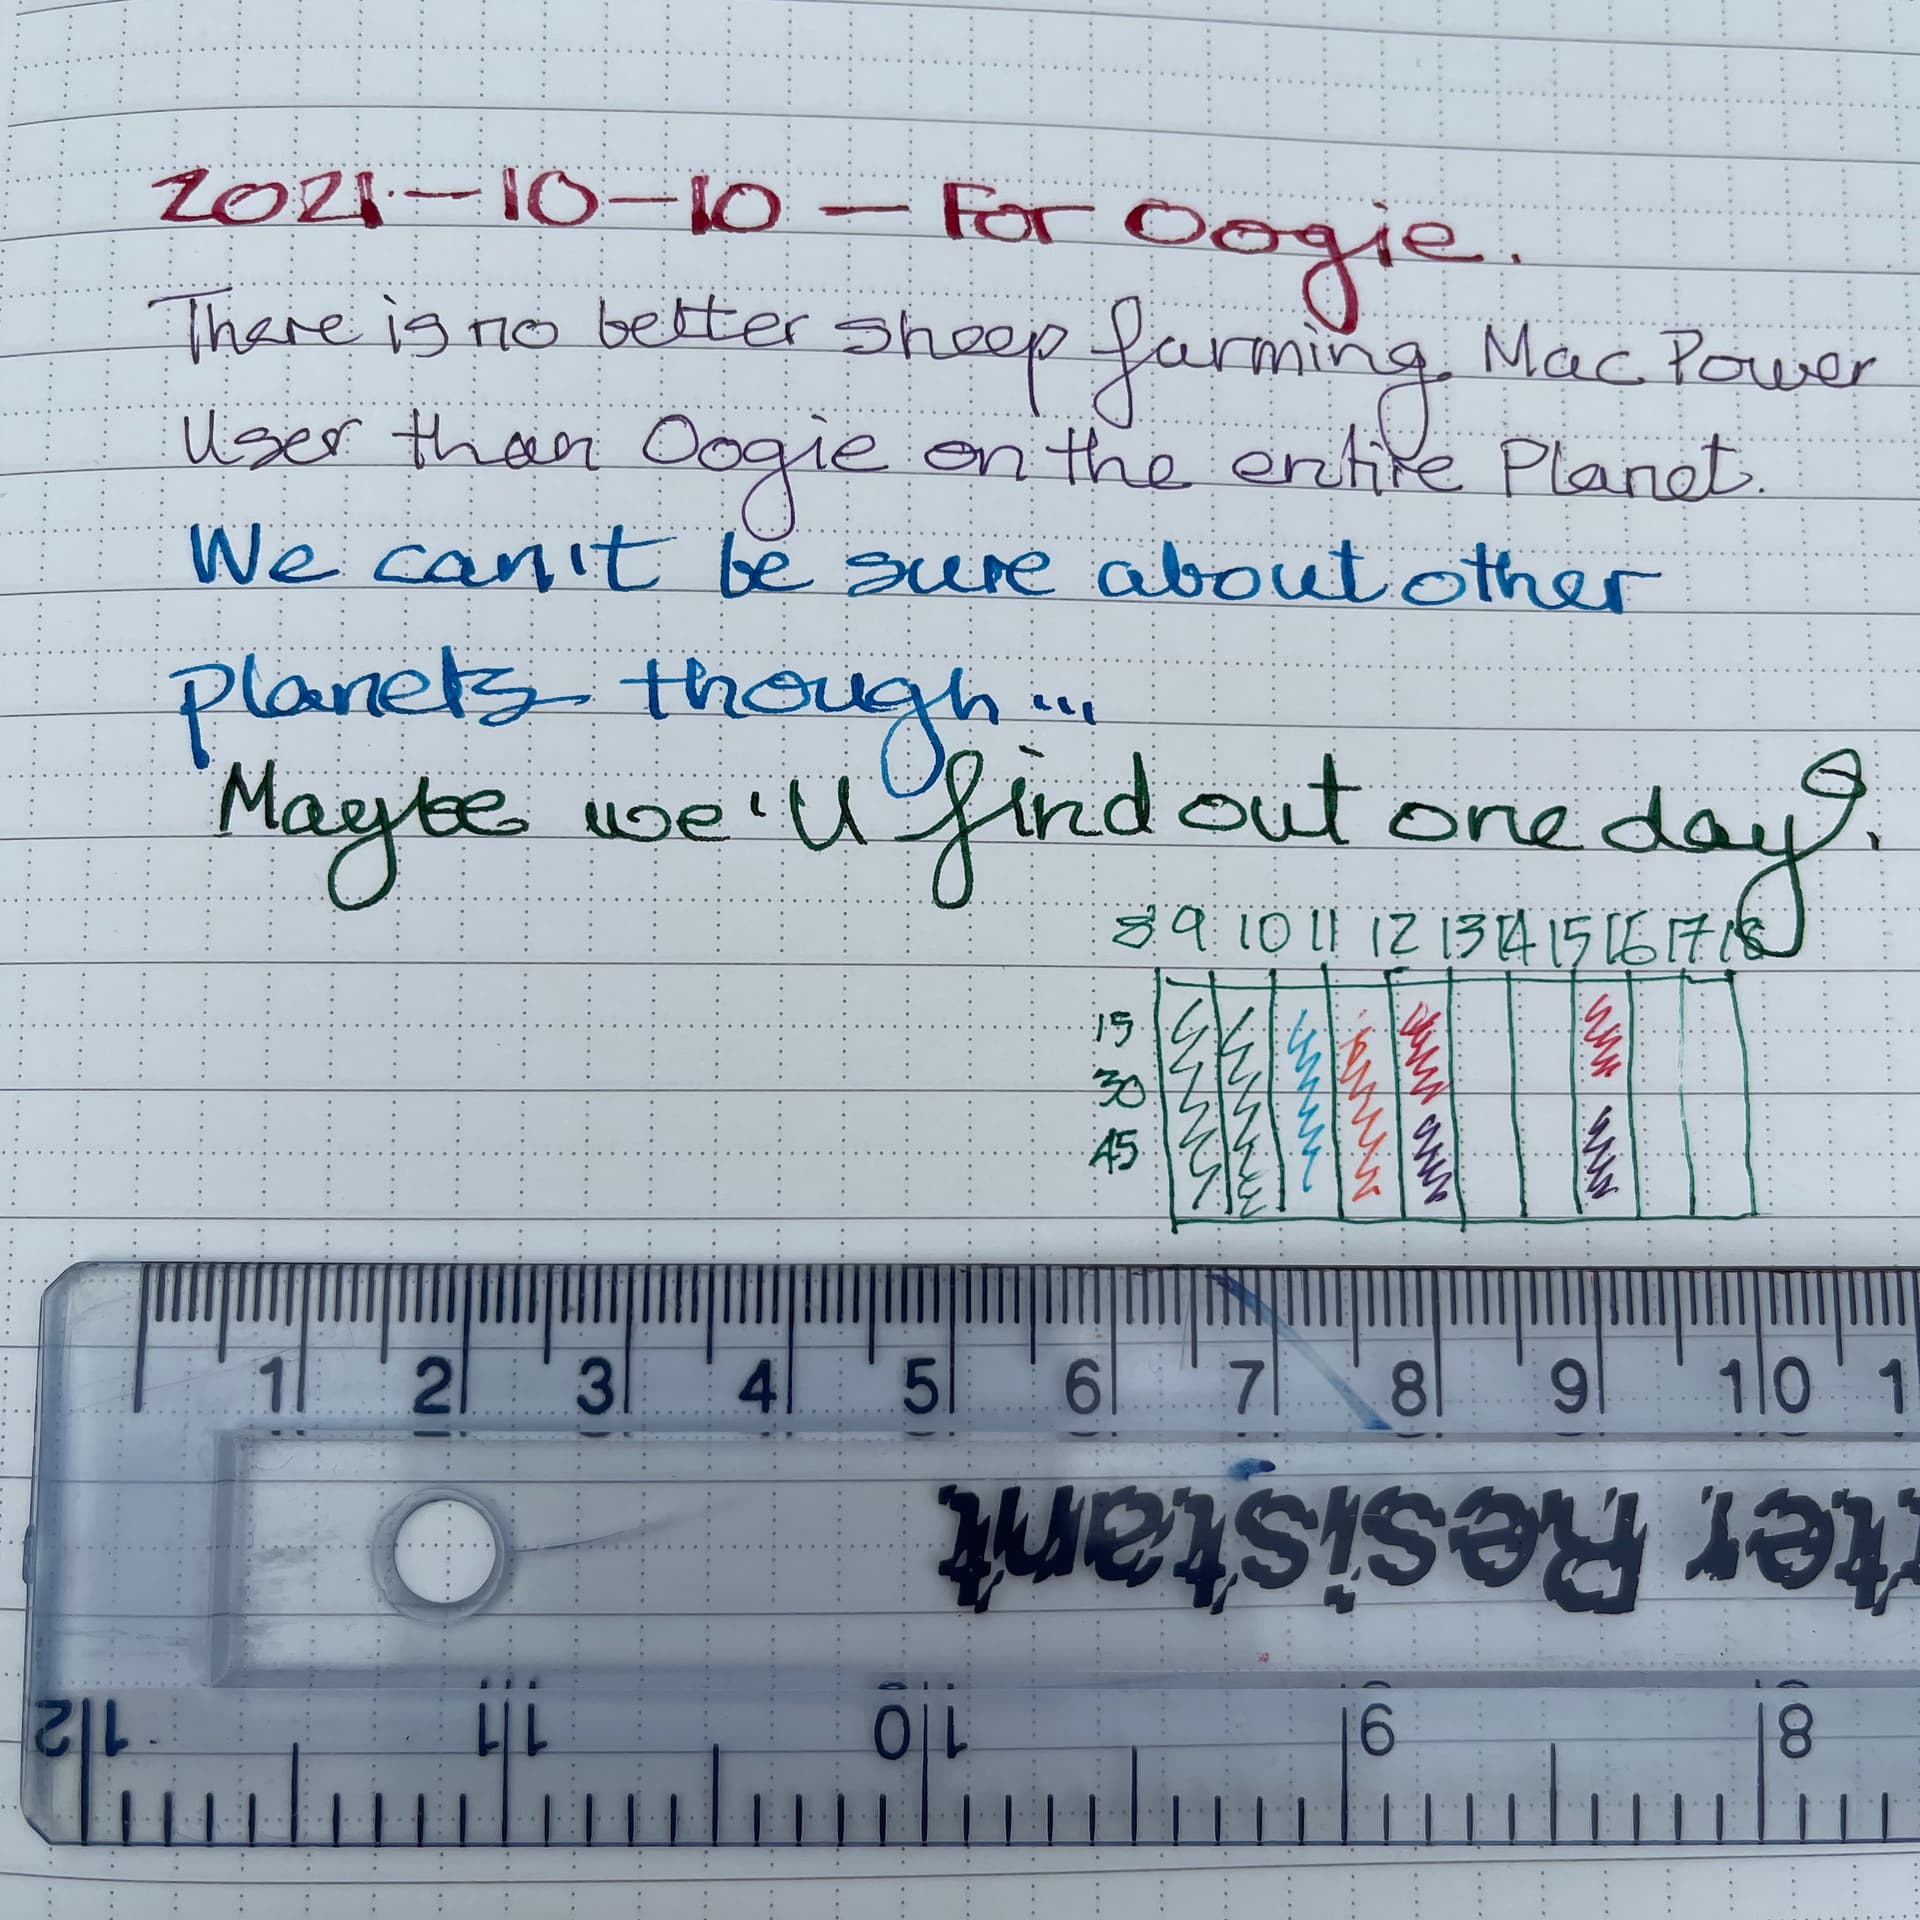 2021-10-10 — For Oogie.
There is no better sheep farming Mac Power
User than Oogie on the entire Planet.
We can't be sure about other
planets though...
Maybe we'll find out one day?
8 9 10 11 12 13 14 15 16 17 18
15
30
45
1 2 3 4 5 6 7 8 9 10 1
tter Resistant
12 11 10 9 8